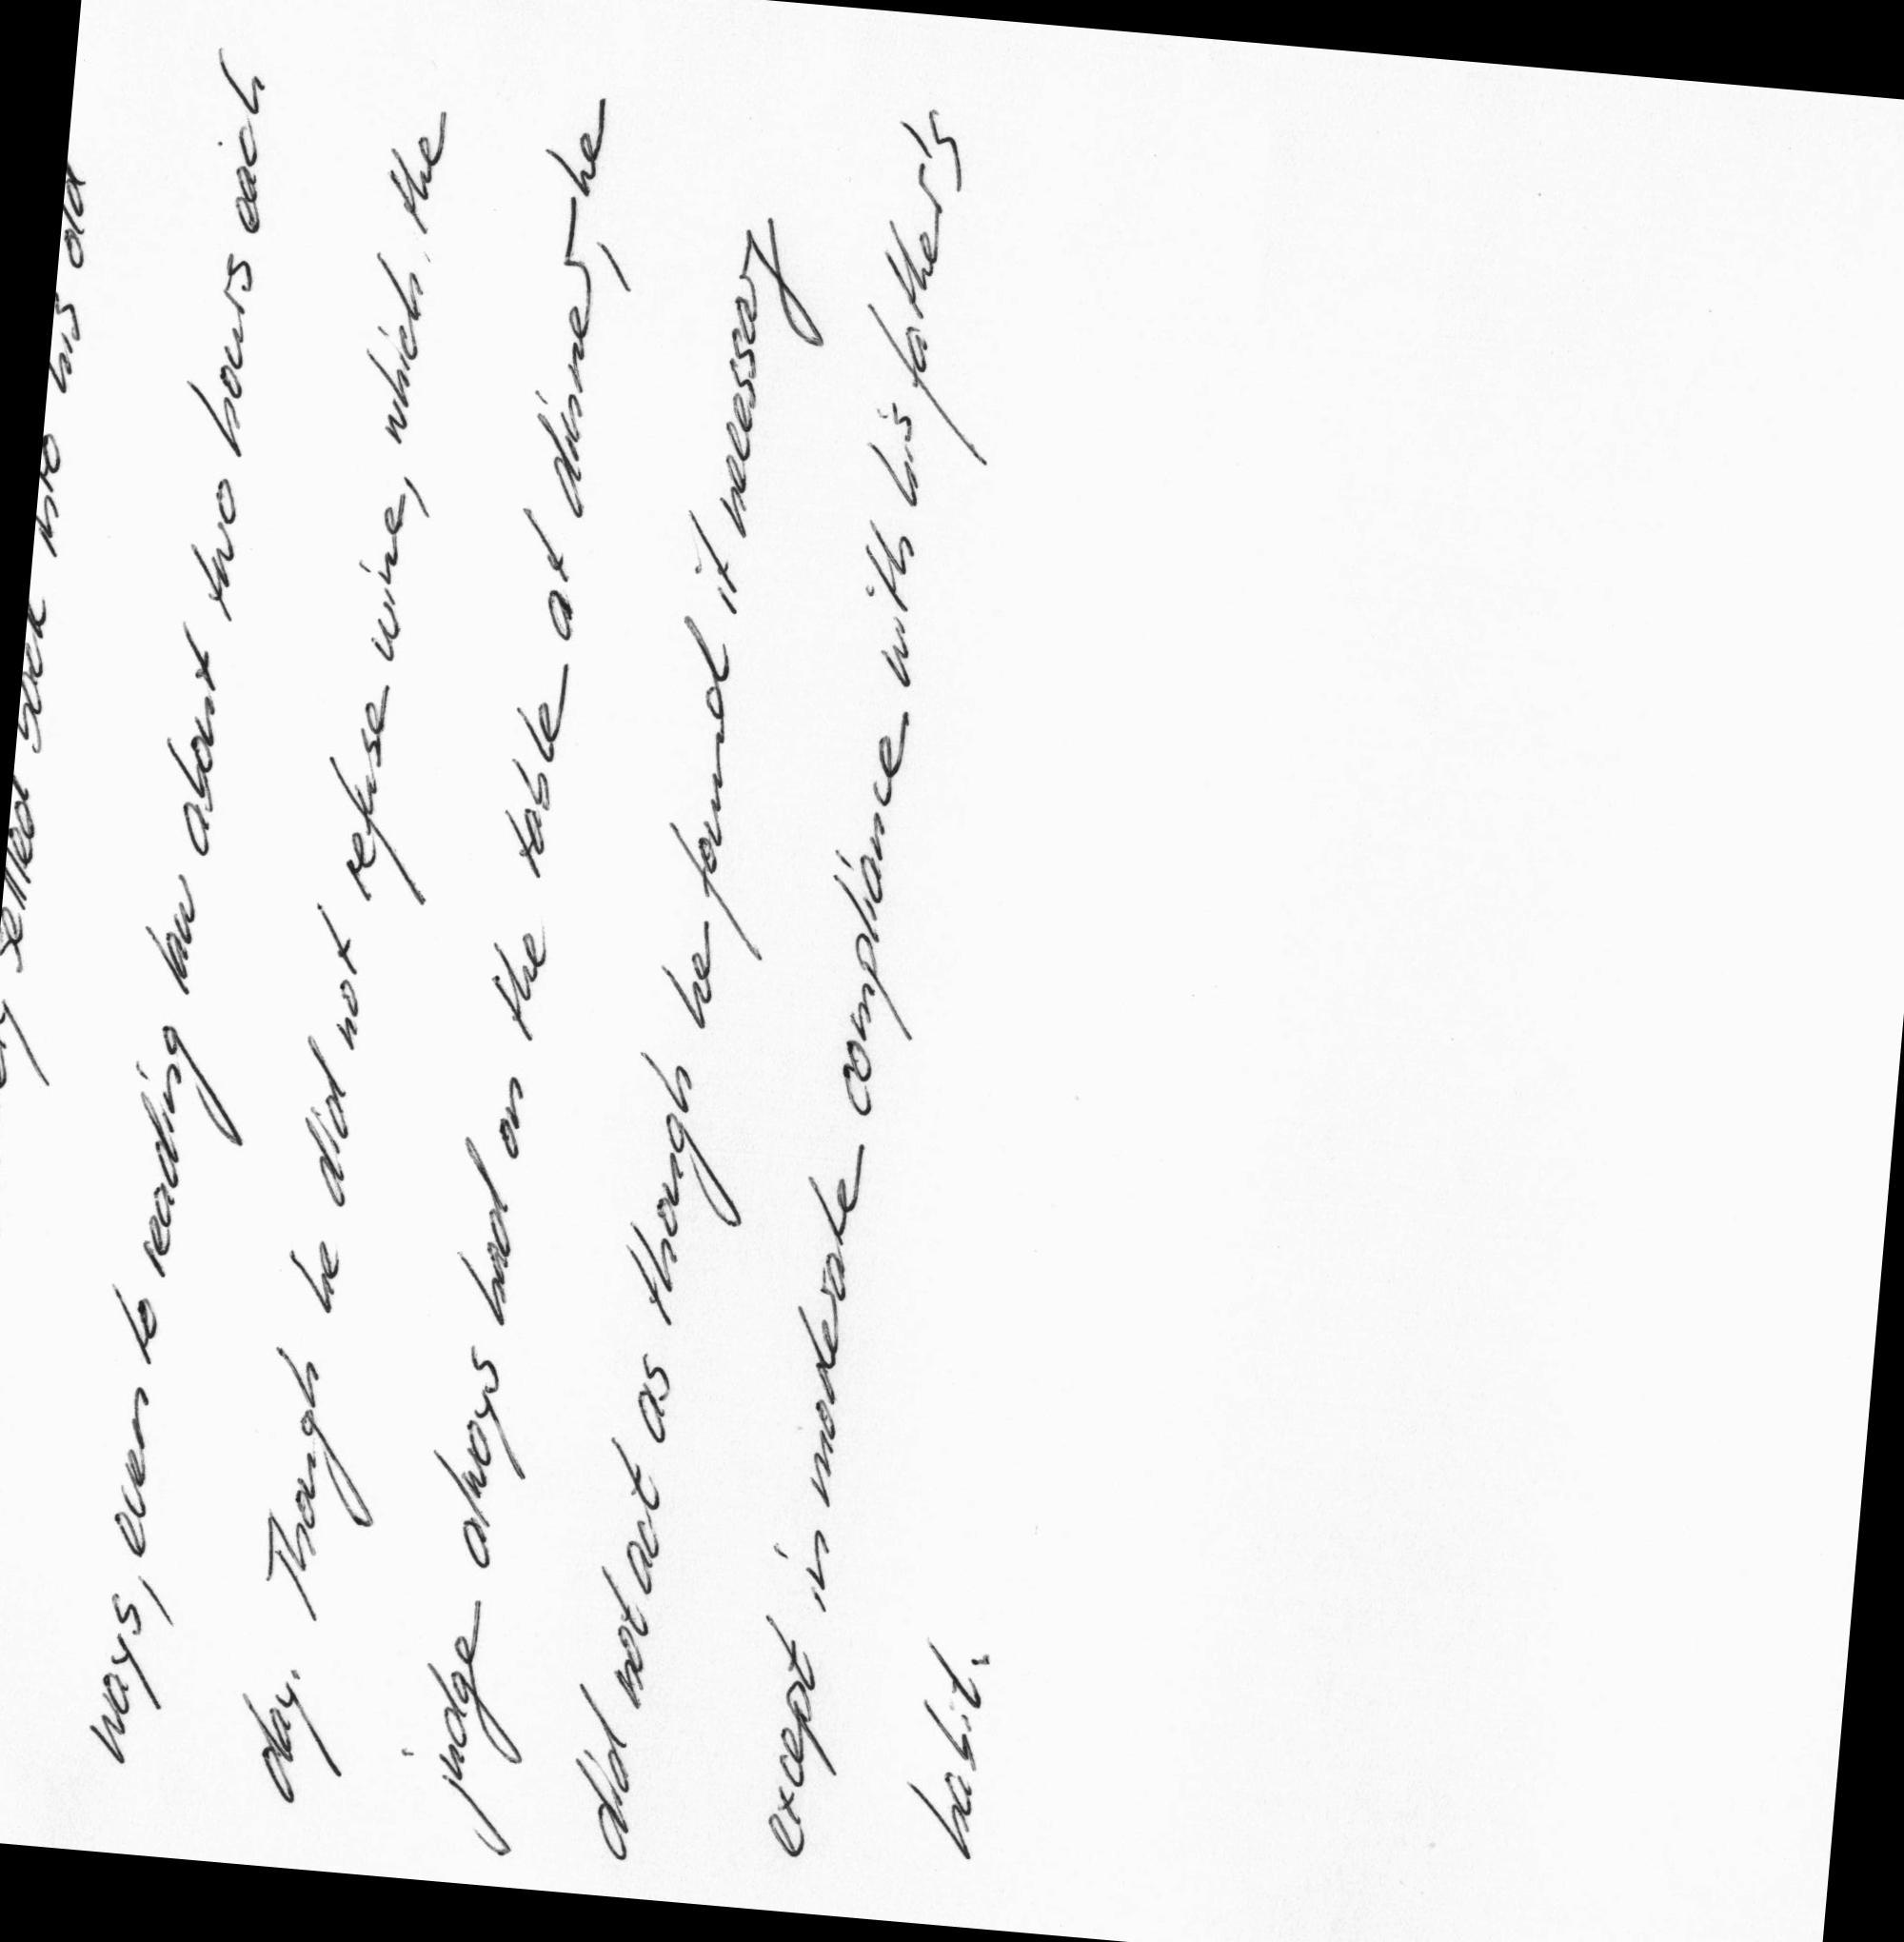 settled back into his old
ways, even to reading law about two hours each
day. Though he did not refuse wine, which the
judge always had on the table at dinner, he
did not act as though he found it necessary
except in moderate compliance with his father's
habit.